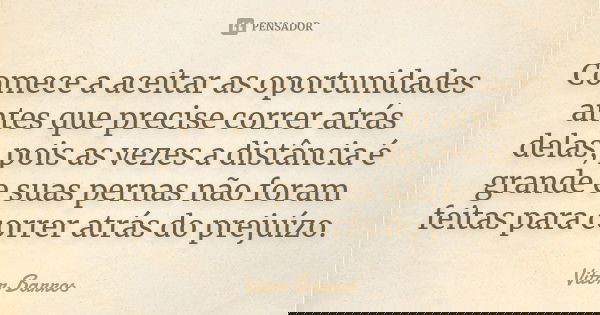 PENSADOR
Comece a aceitar as oportunidades
antes que precise correr atrás
delas, pois as vezes a distância é
grande e suas pernas não foram
feitas para correr atrás do prejuízo.
Vitor Barros